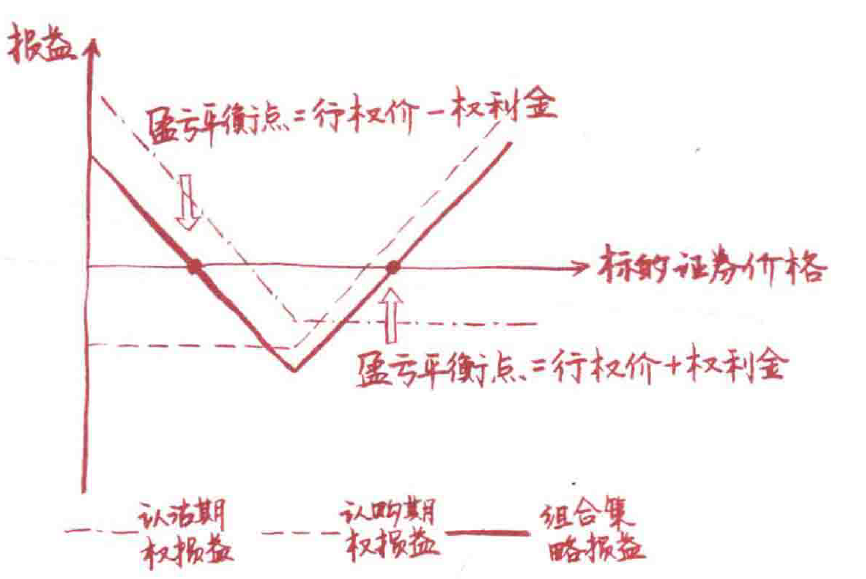 损益
盈亏平衡点=行权价-权利金
标的证券价格
盈亏平衡点=行权价+权利金
认沽期
权损益
认购期
权损益
组合策
略损益